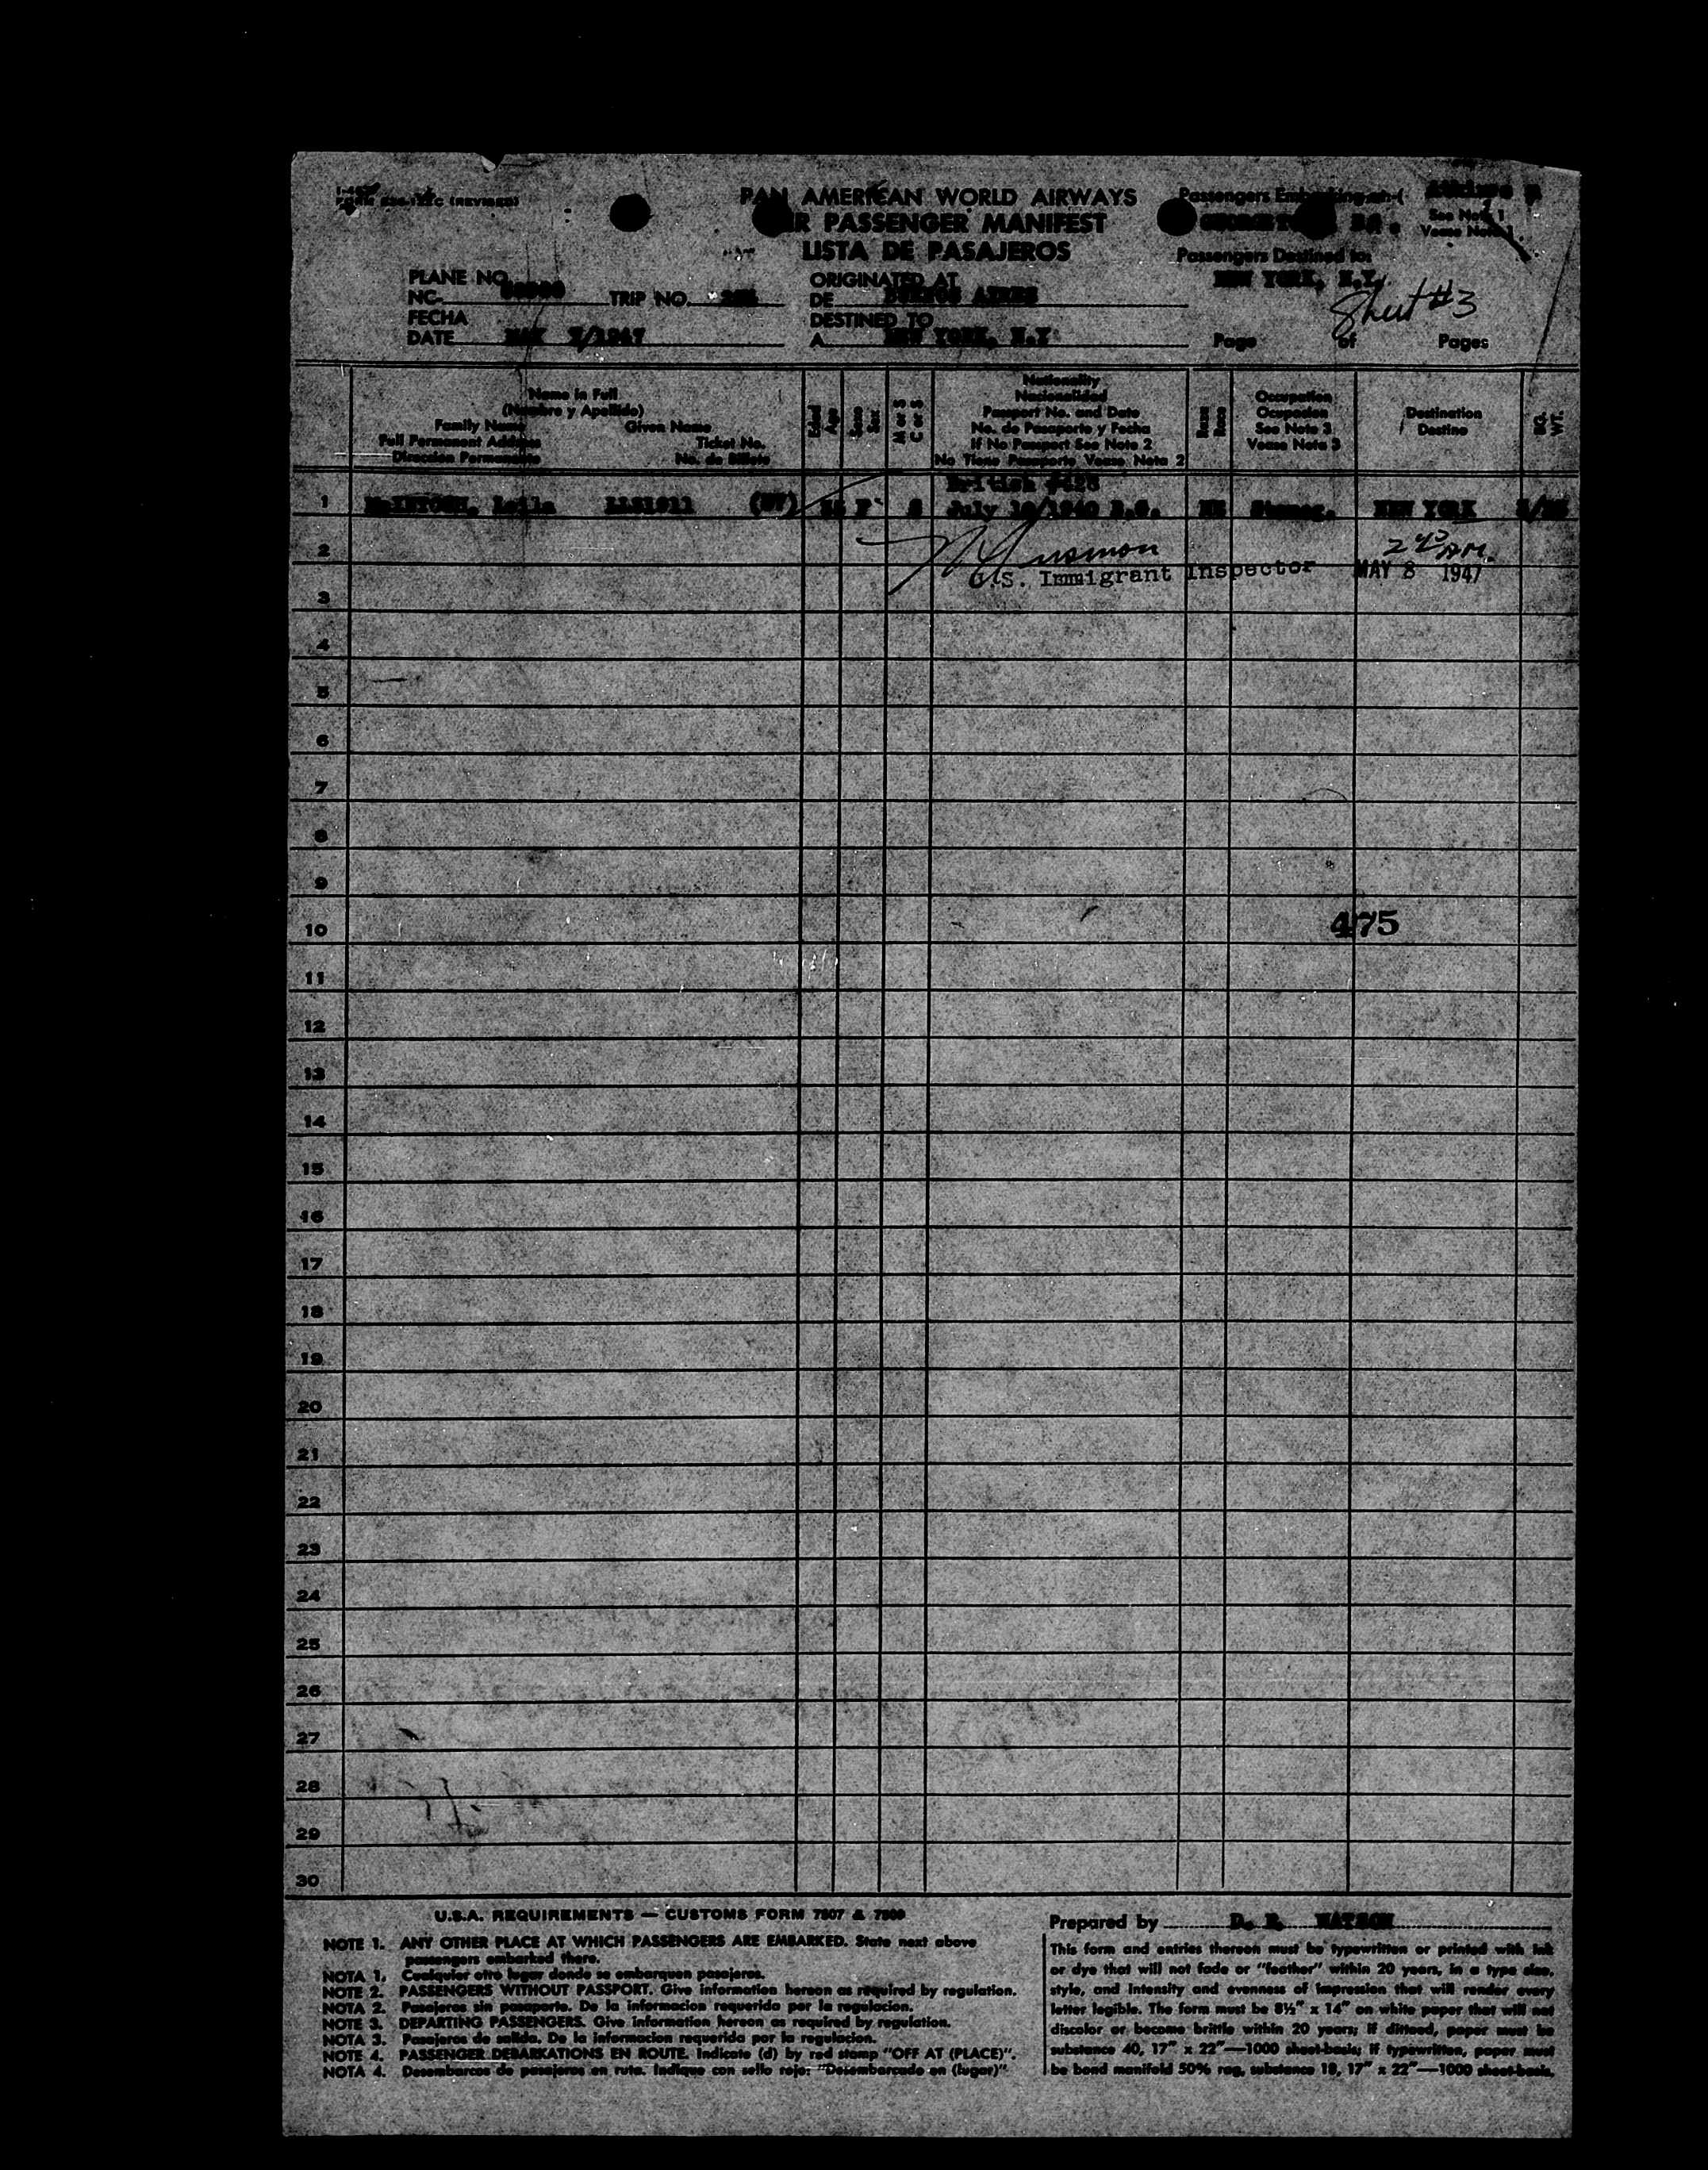 FORM (REVISED)
PAN AMERICAN WORLD AIRWAYS
PASSENGER MANIFEST
LISTA DE PASAJEROS
Passengers Embarking at
See Note 1
Vease Nota 1
Passengers Destined to:
NEW YORK, N.Y.
Sheet #3
PLANE NO.
NC- TRIP NO.
FECHA
DATE MAY 7/1947
ORIGINATED AT
DE BUENOS AIRES
DESTINED TO
A NEW YORK, N.Y
Page of Pages
Name in Full
(Nombre y Apellido)
Family Name Given Name
Full Permanent Address Ticket No.
Direccion Permanente No. de Billete
Edad
Age
Sexo
Sex
M or S
C or S
Nationality
Nacionalidad
Passport No. and Date
No. de Pasaporte y Fecha
If No Passport See Note 2
No Tiene Pasaporte Vease Nota 2
Raza
Race
Occupation
Ocupacion
See Note 3
Vease Nota 3
Destination
Destino
WT.
British
1 McINTOSH, Leila F S July B.G. Stenog. NEW YORK
2
U.S. Immigrant Inspector MAY 8 1947
3
4
5
6
7
8
9
10 475
11
12
13
14
15
16
17
18
19
20
21
22
23
24
25
26
27
28
29
30
U.S.A. REQUIREMENTS — CUSTOMS FORM 7507 &
NOTE 1. ANY OTHER PLACE AT WHICH PASSENGERS ARE EMBARKED. State next above
passengers embarked there.
NOTA 1. Cualquier otro lugar donde se embarquen pasajeros.
NOTE 2. PASSENGERS WITHOUT PASSPORT. Give information hereon as required by regulation.
NOTA 2. Pasajeros sin pasaporte. De la informacion requerida por la regulacion.
NOTE 3. DEPARTING PASSENGERS. Give information hereon as required by regulation.
NOTA 3. Pasajeros de salida. De la informacion requerida por la regulacion.
NOTE 4. PASSENGER DEBARKATIONS EN ROUTE. Indicate (d) by red stamp "OFF AT (PLACE)".
NOTA 4. Desembarcos de pasajeros en ruta. Indique con sello rojo: "Desembarcado en (lugar)"
Prepared by D. R. WATSON
This form and entries thereon must be typewritten or printed with ink
or dye that will not fade or "feather" within 20 years, in a type size,
style, and intensity and evenness of impression that will render every
letter legible. The form must be 8½" x 14" on white paper that will not
discolor or become brittle within 20 years; if dittoed, paper must be
substance 40, 17" x 22"—1000 sheet-basis; if typewritten, paper must
be bond manifold 50% rag, substance 18, 17" x 22"—1000 sheet-basis.